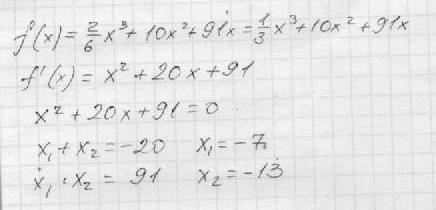 f(x) = 2/6 x³ + 10x² + 91x = 1/3 x³ + 10x² + 91x
f'(x) = x² + 20x + 91
x² + 20x + 91 = 0
x₁ + x₂ = -20 x₁ = -7
x₁ · x₂ = 91 x₂ = -13